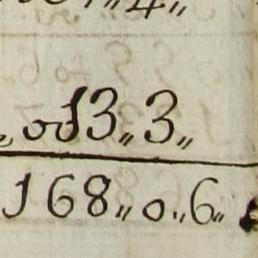 4„
„013„3„
168„0„6„